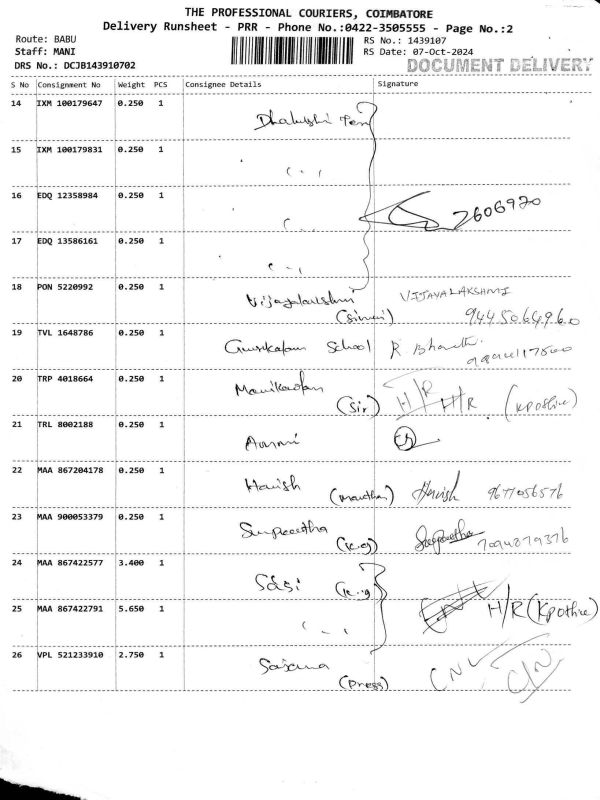 THE PROFESSIONAL COURIERS, COIMBATORE
Delivery Runsheet - PRR - Phone No.:0422-3505555 - Page No.:2
Route: BABU RS No.: 1439107
Staff: MANI RS Date: 07-Oct-2024
DRS No.: DCJB143910702 DOCUMENT DELIVERY
S No Consignment No Weight PCS Consignee Details Signature
14 IXM 100179647 0.250 1
15 IXM 100179831 0.250 1
16 EDQ 12358984 0.250 1 2606920
17 EDQ 13586161 0.250 1
18 PON 5220992 0.250 1 Vijayalakshmi VIJAYALAKSHMI
9445064960
19 TVL 1648786 0.250 1 School R Bharath
20 TRP 4018664 0.250 1 H/R
(Sir) H/R
21 TRL 8002188 0.250 1 Ammi
22 MAA 867204178 0.250 1 Harish Harish 9677056576
23 MAA 900053379 0.250 1
(K.g) 7094279376
24 MAA 867422577 3.400 1 Sasi (K.g)
25 MAA 867422791 5.650 1 H/R (Kpothire)
26 VPL 521233910 2.750 1 Sajana
(Press) CNL C/N